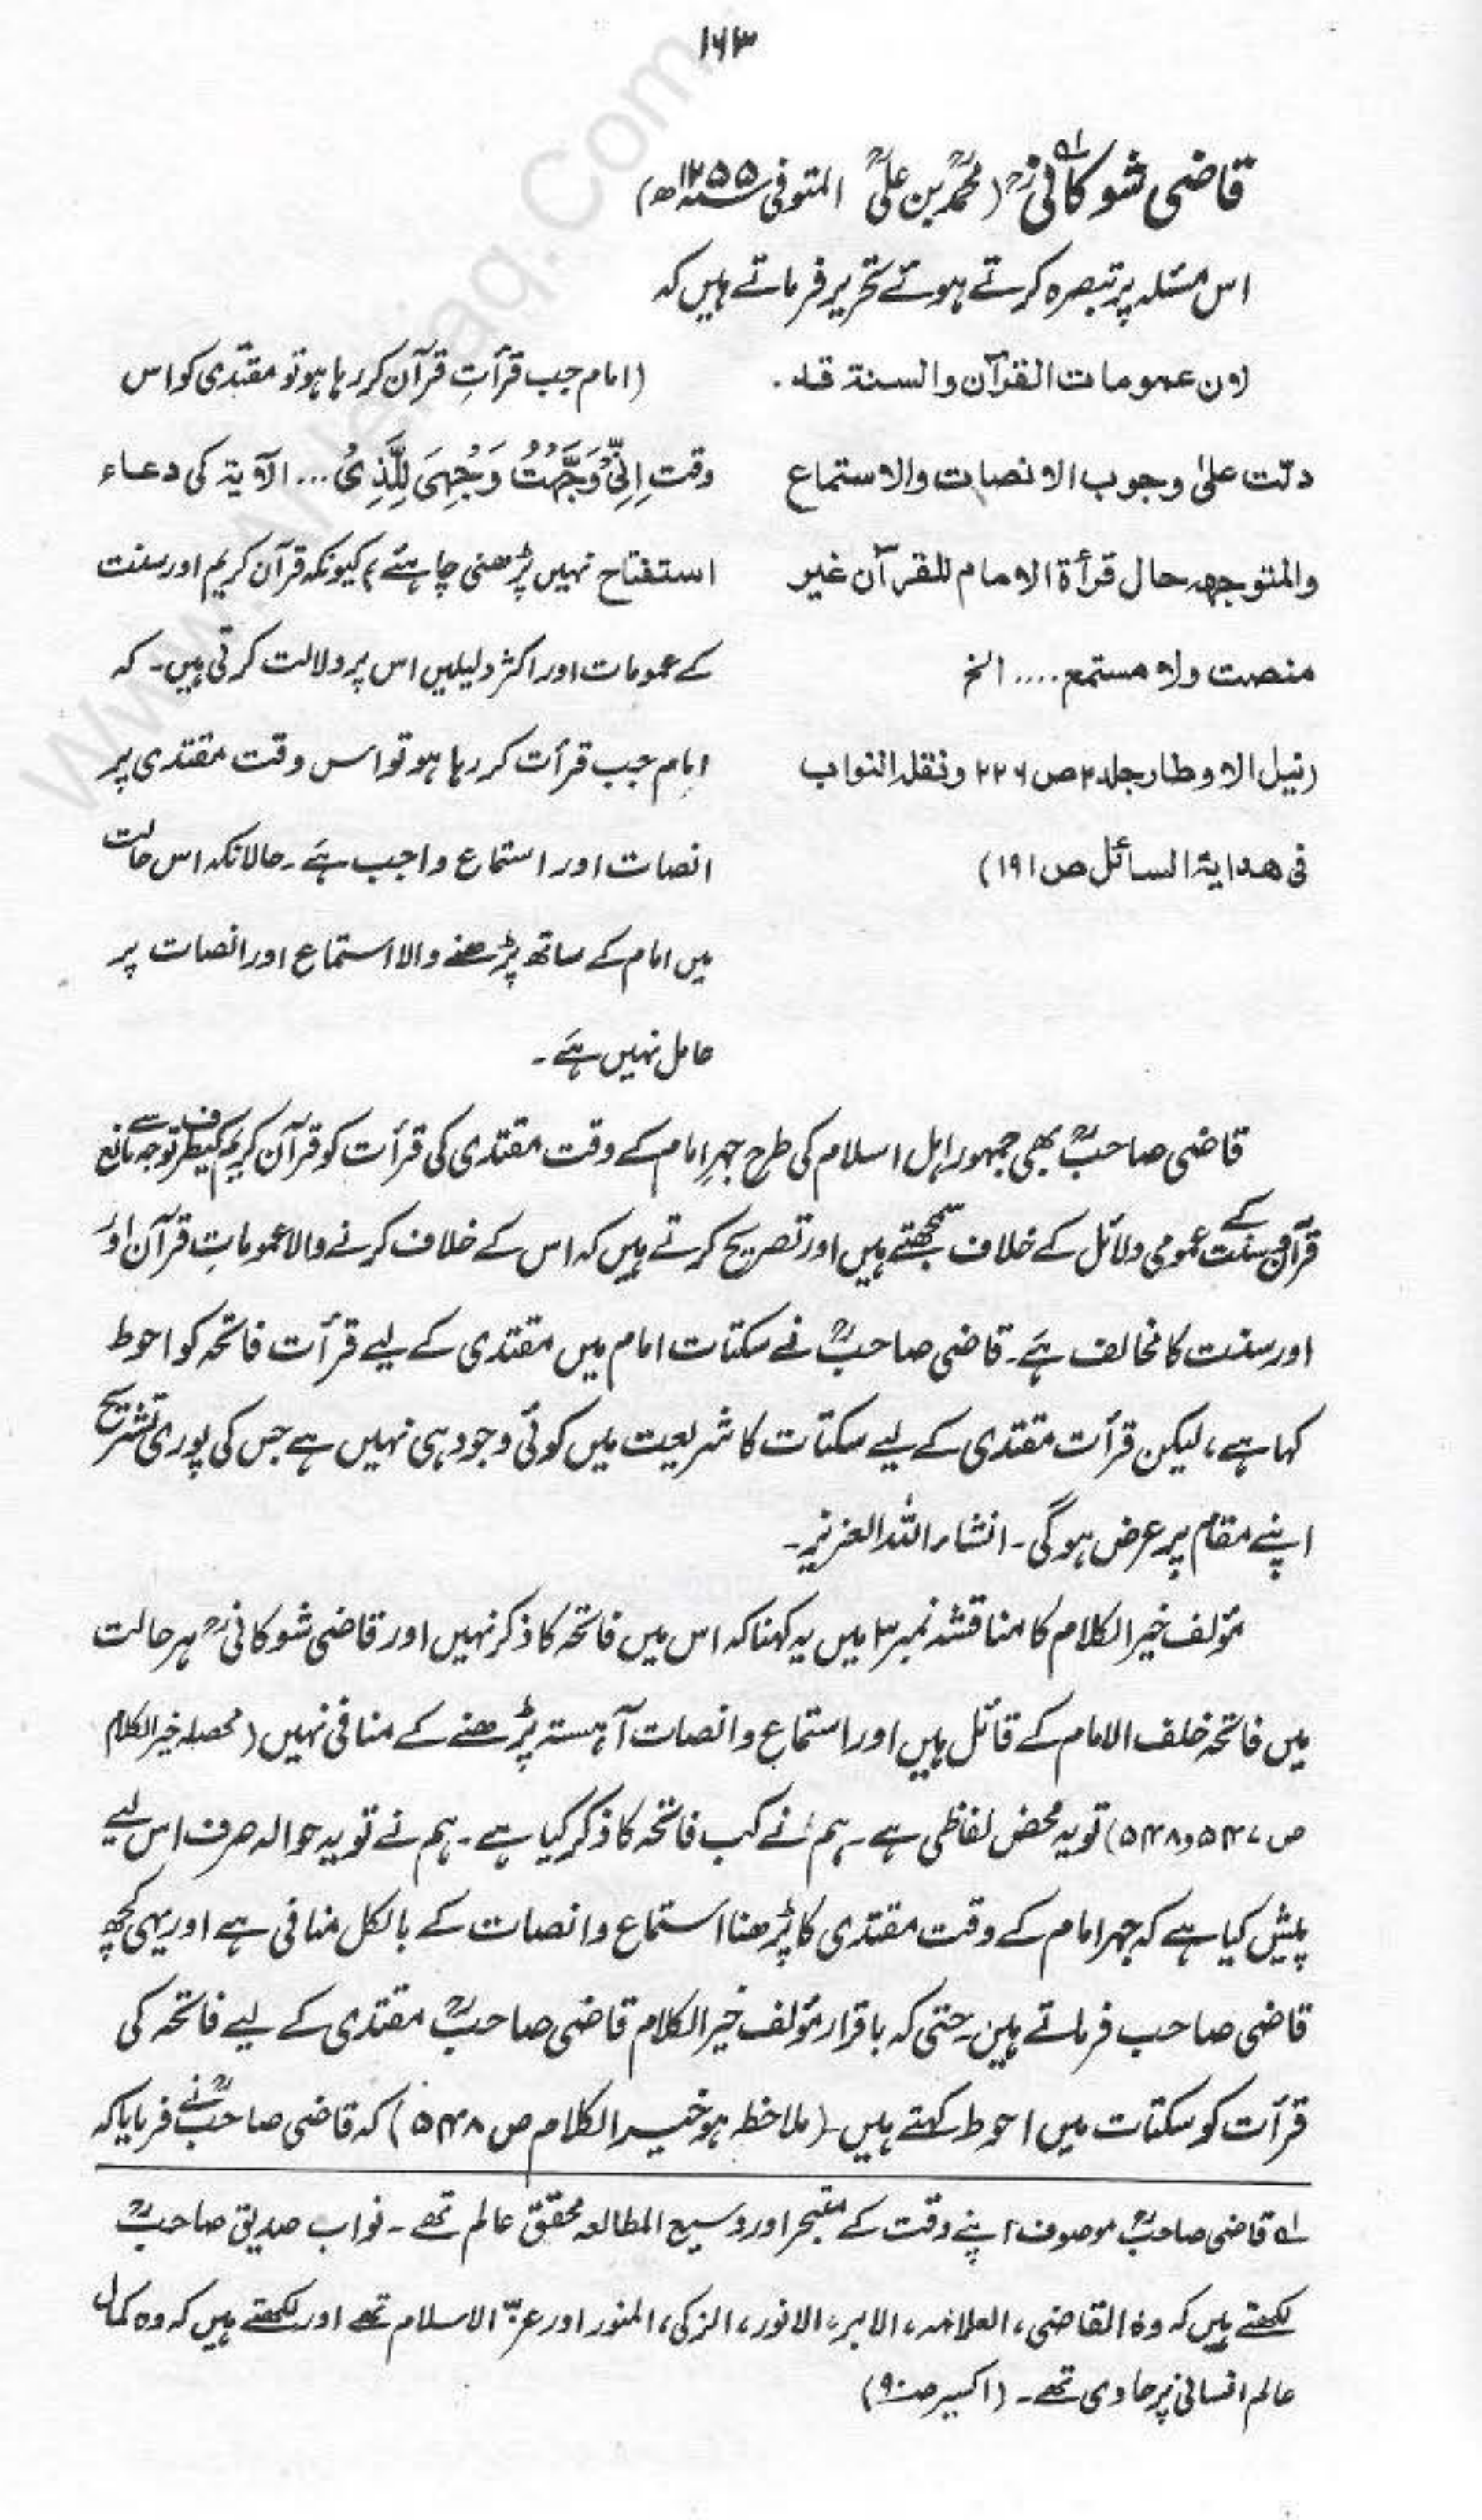 ۱۶۳
قاضی شوکانیؒ ۱؎ (محمدؒ بن علیؒ المتوفی سنہ ۱۲۵۵ھ)
اس مسئلہ پر تبصرہ کرتے ہوئے تحریر فرماتے ہیں کہ
لان عمومات القرآن والسنۃ قد
دلت علیٰ وجوب الانصات والاستماع
والمتوجھہ حال قرأۃ الامام للقرآن غیر
منصت ولا مستمع .... الخ
(نیل الاوطار جلد ۲ ص ۲۲۶ ونقلہ النواب
فی ھدایۃ السائل ص ۱۹۱)
(امام جب قرأتِ قرآن کر رہا ہو تو مقتدی کو اس
وقت اِنِّیْ وَجَّهْتُ وَجْهِیَ لِلَّذِیْ ... الآیۃ کی دعاء
استفتاح نہیں پڑھنی چاہئے) کیونکہ قرآن کریم اور سنت
کے عمومات اور اکثر دلیلیں اس پر دلالت کرتی ہیں۔ کہ
امام جب قرأت کر رہا ہو تو اس وقت مقتدی پر
انصات اور استماع واجب ہے۔ حالانکہ اس حالت
میں امام کے ساتھ پڑھنے والا استماع اور انصات پر
عامل نہیں ہے۔
قاضی صاحبؒ بھی جمہور اہل اسلام کی طرح جہرِ امام کے وقت مقتدی کی قرأت کو قرآن کریم کیطرف توجہ سے مانع
قرآن و سنت کے عمومی دلائل کے خلاف سمجھتے ہیں اور تصریح کرتے ہیں کہ اس کے خلاف کرنے والا عموماتِ قرآن اور
اور سنت کا مخالف ہے۔ قاضی صاحبؒ نے سکتات امام میں مقتدی کے لیے قرأت فاتحہ کو احوط
کہا ہے، لیکن قرأت مقتدی کے لیے سکتات کا شریعت میں کوئی وجود ہی نہیں ہے جس کی پوری تشریح
اپنے مقام پر عرض ہوگی۔ انشاء اللہ العزیز۔
مؤلف خیر الکلام کا مناقشہ نمبر ۳ میں یہ کہنا کہ اس میں فاتحہ کا ذکر نہیں اور قاضی شوکانیؒ ہر حالت
میں فاتحہ خلف الامام کے قائل ہیں اور استماع و انصات آہستہ پڑھنے کے منافی نہیں (محصلہ خیر الکلام
ص ۵۴۷ و ۵۴۸) تو یہ محض لفاظی ہے۔ ہم نے کب فاتحہ کا ذکر کیا ہے۔ ہم نے تو یہ حوالہ صرف اس لیے
پیش کیا ہے کہ جہر امام کے وقت مقتدی کا پڑھنا استماع و انصات کے بالکل منافی ہے اور یہی کچھ
قاضی صاحب فرماتے ہیں۔ حتی کہ باقرار مؤلف خیر الکلام قاضی صاحبؒ مقتدی کے لیے فاتحہ کی
قرأت کو سکتات میں احوط کہتے ہیں۔ (ملاحظہ ہو خیر الکلام ص ۵۴۸) کہ قاضی صاحبؒ نے فرمایا کہ
۱؎ قاضی صاحبؒ موصوف اپنے وقت کے متبحر اور وسیع المطالعہ محقق عالم تھے۔ نواب صدیق صاحبؒ
لکھتے ہیں کہ وہ القاضی، العلامہ، الابر، الانور، الزکی، المنور اور عزّ الاسلام تھے اور لکھتے ہیں کہ وہ کمال
عالم انسانی پر حاوی تھے۔ (اکسیر صہ ۹۰)